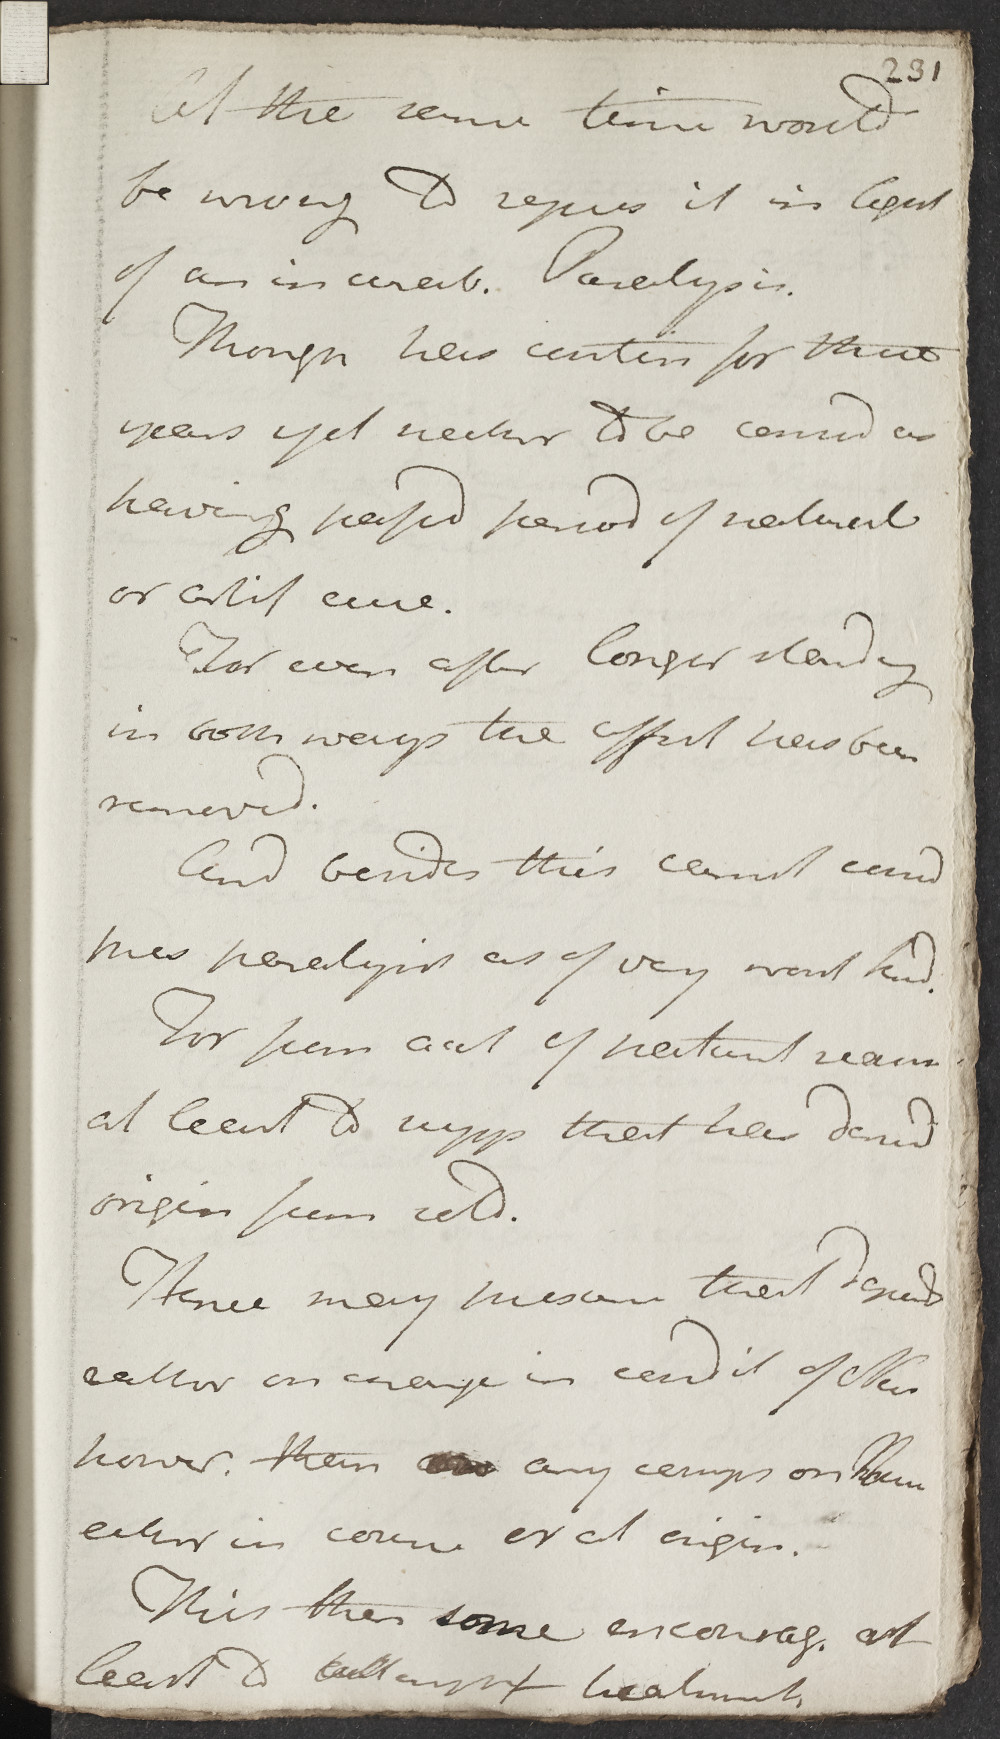 231
At the same time would
be wrong to repres it in light
of an incurab. Paralysis.
Though has contin for three
years yet neither to be consid as
having passd period of natural
or artif cure.
For even after longer standing
in both ways the affect has been
removed.
And besides this cannot consid
pres paralysis as of very worst kind.
For from acct of patient reason
at least to supp that has derivd
origin from cold.
Hence may presum that depends
rather on change in condit of Nerv
power. than any comps on
either in course or at origin.
This then some encourag. at
least to attempt treatment.